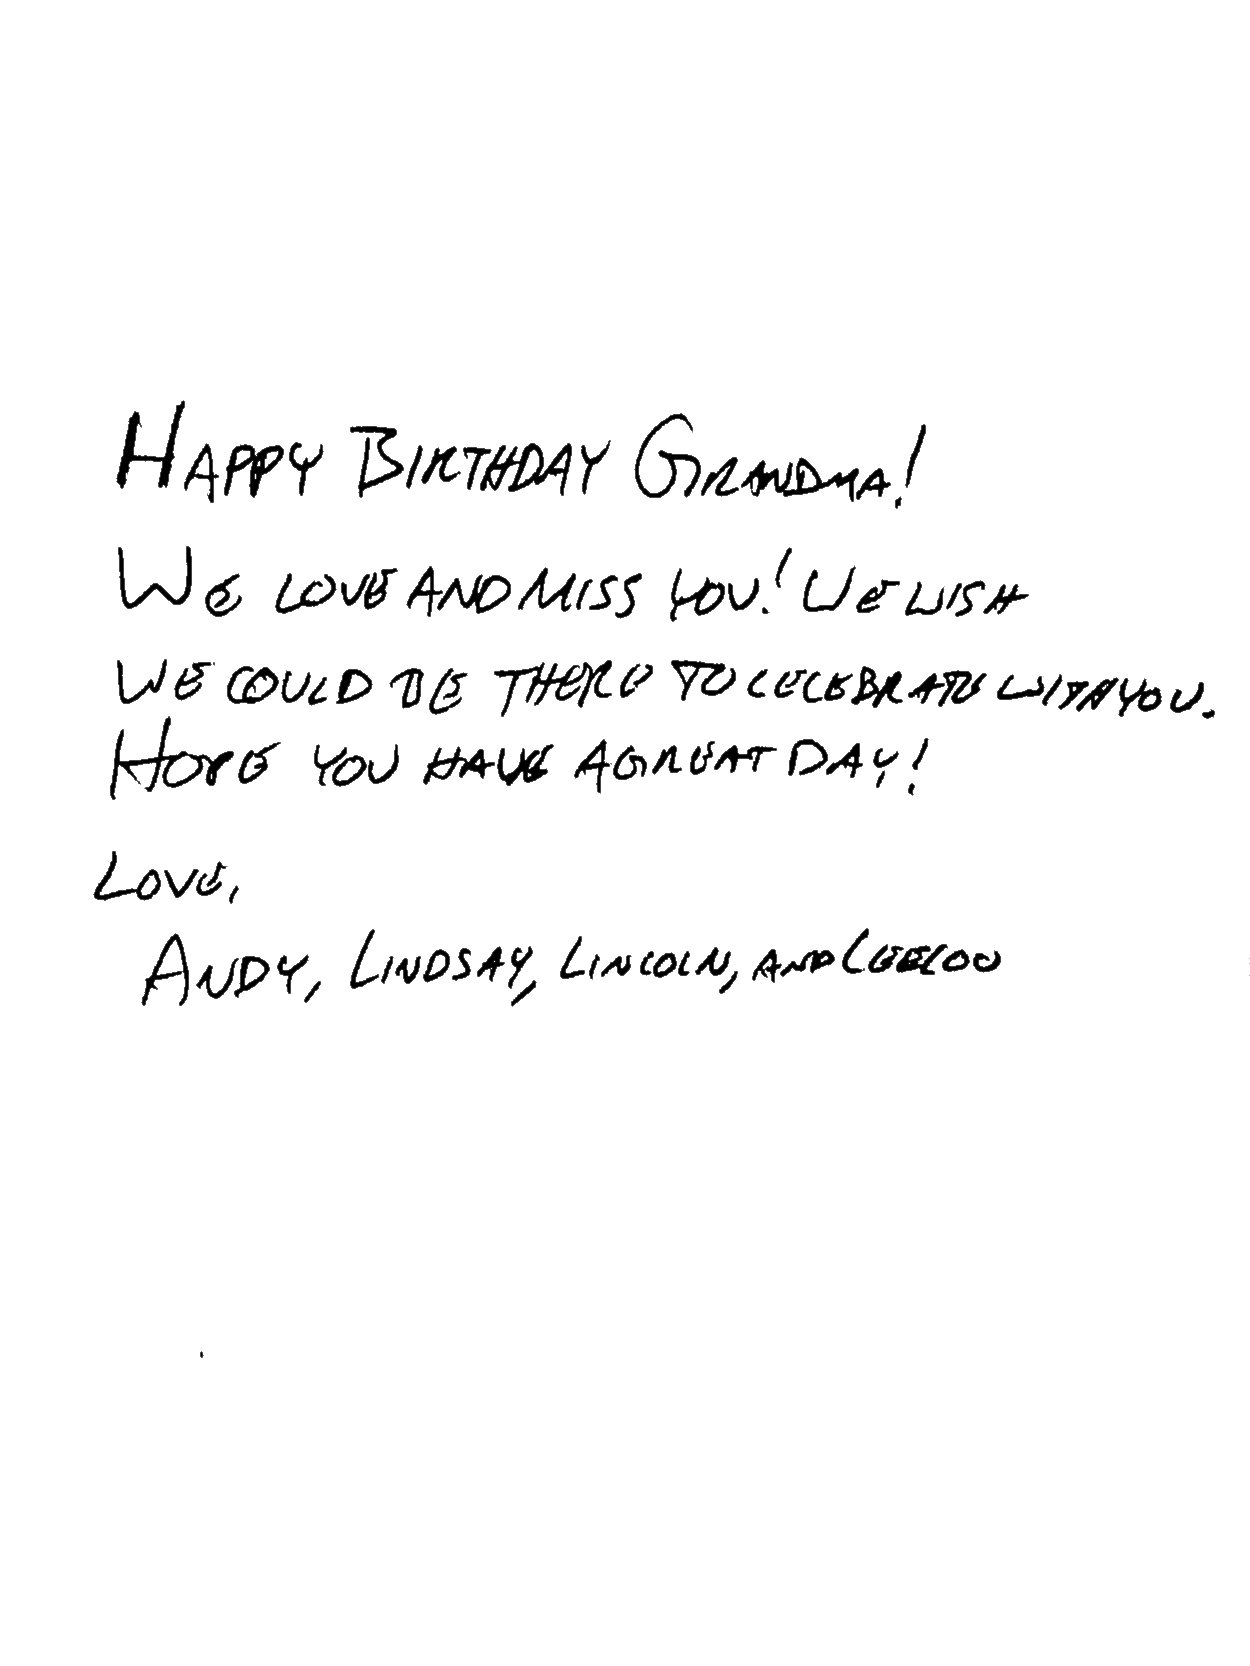 HAPPY BIRTHDAY GRANDMA!
WE LOVE AND MISS YOU! WE WISH
WE COULD BE THERE TO CELEBRATE WITH YOU.
HOPE YOU HAVE A GREAT DAY!
LOVE,
ANDY, LINDSAY, LINCOLN, AND LEELOO